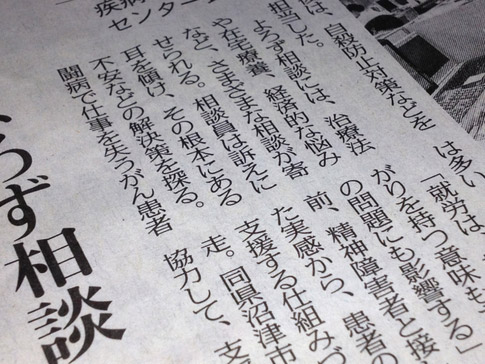 疾病
センター
は、自殺防止対策などを
担当した。
よろず相談には、治療法
や在宅療養、経済的な悩み
など、さまざまな相談が寄
せられる。相談員は訴えに
耳を傾け、その根本にある
不安などの解決策を探る。
闘病で仕事を失うがん患者
は多い
「就労は、
がりを持つ意味も
の問題にも影響する」
前、精神障害者と接
た実感から、患者の
支援する仕組みづ
走。同県沼津市
協力して、支
ろず相談